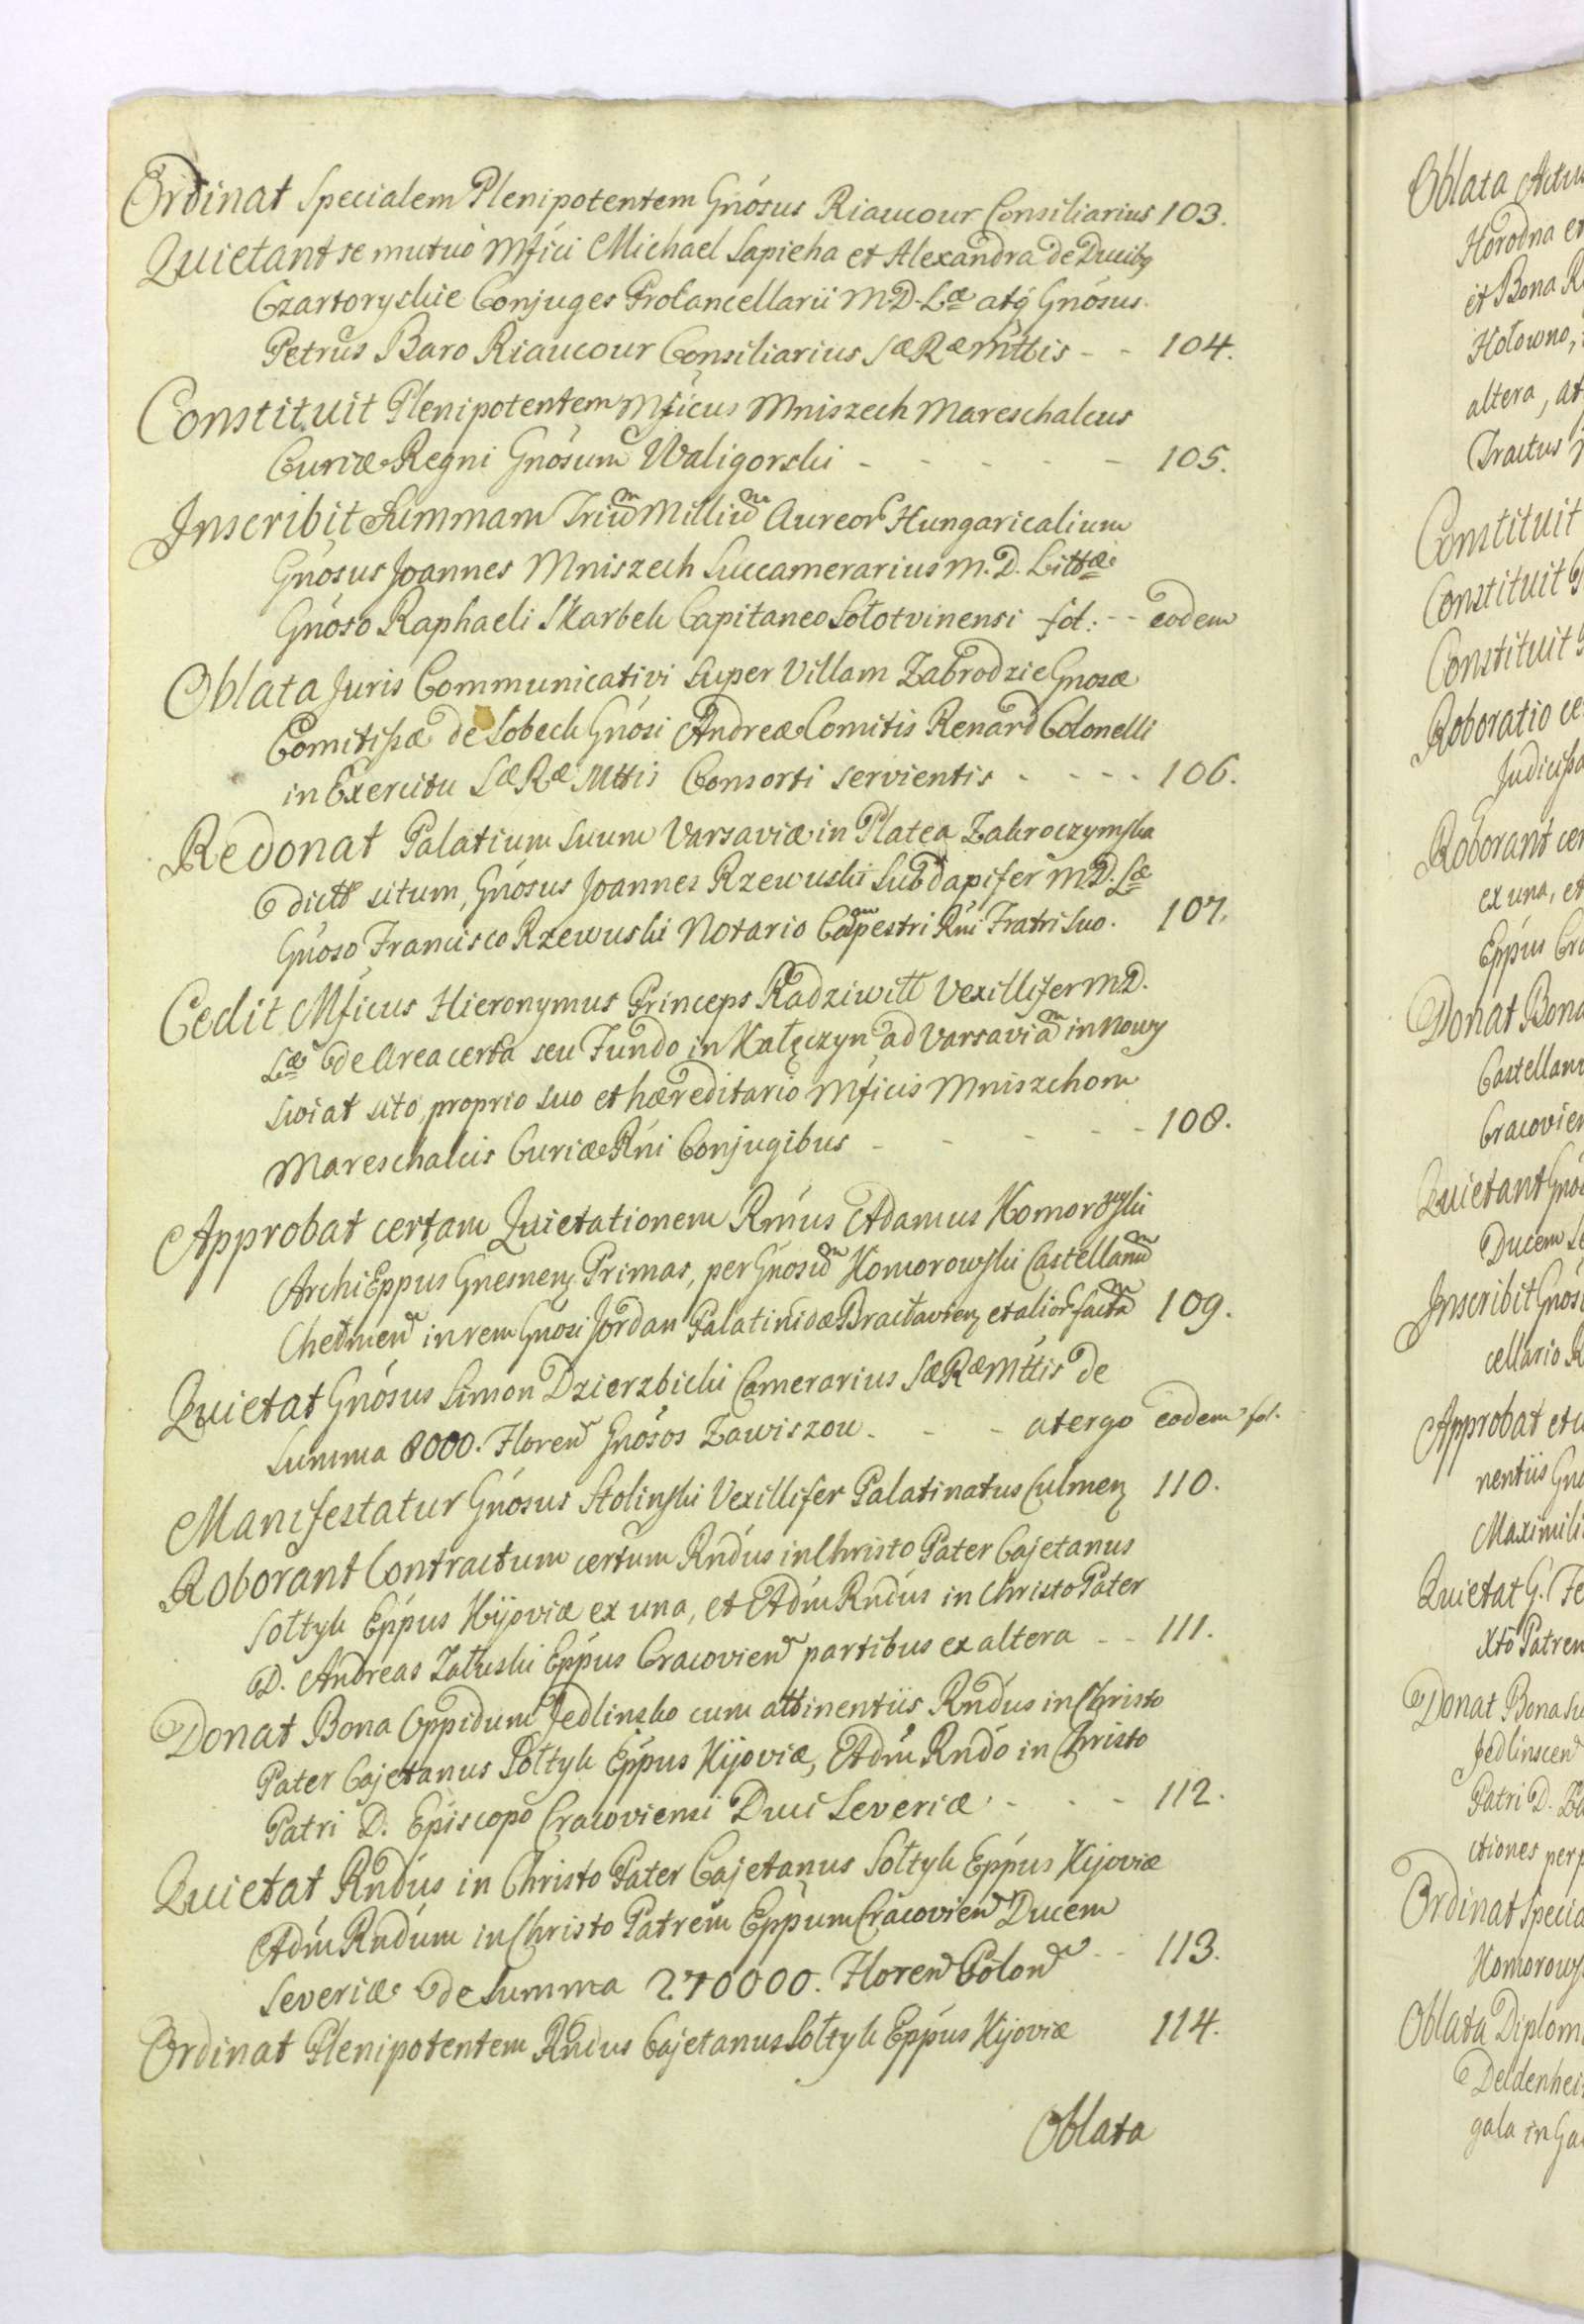 Ordinat Specialem Plenipotentem Gnosus Riaucour Consiliarius 103.
Quietant se mutuo Mfici Michael Sapieha et Alexandra de Ducibq
Czartoryskie Conjuges Procancellarii M.D.Læ atq Gnosus
Petrus Baro Riaucour Consiliarius SæRæMttis - - 104.
Constituit Plenipotentem Mficus Mniszech Mareschalcus
Curiæ Regni Gnosum Waligorski - - - - - 105.
Inscribit Summam Triũ Milliũ Aureor Hungaricalium
Gnosus Joannes Mniszech Succamerarius M.D. Littæ
Gnoso Raphaeli Skarbek Capitaneo Sołotvinensi fol: - - eodem
Oblata Juris Communicativi super Villam Zabrodzie Gnosæ
Comitissæ de Lobeck Gnosi Andreæ Comitis Renard Colonelli
in Exercitu SæRæ Mttis Consorti servientis - - - - 106.
Redonat Palatium suum Varsaviæ in Platea Zakroczymska
dicta situm, Gnosus Joannes Rzewuski Subdapifer M.D.Læ
Gnoso Francisco Rzewuski Notario Campestri Rni Fratri suo. 107.
Cedit Mficus Hieronymus Princeps Radziwiłł Vexillifer M.D.
Læ de Area certa seu Fundo in Kałęczyn ad Varsaviã in Nowy
Swiat sito, proprio suo et hæreditario Mficis Mniszchom
Mareschalcis Curiæ Rni Conjugibus - - - - - 108.
Approbat certam Quietationem Rmus Adamus Komorowski
ArchiEppus Gnesnen Primas, per Gnosũ Komorowski Castellanũ
Chełmen in rem Gnosi Jordan Palatinidæ Bracłavien et alior factã 109.
Quietat Gnosus Simon Dzierzbicki Camerarius SæRæMttis de
summa 8000. Floren Gnosos Zawiszow - - - a tergo eodem fol.
Manifestatur Gnosus Stolinski Vexillifer Palatinatus Culmen 110.
Roborant Contractum certum Rndus in Christo Pater Cajetanus
Sołtyk Eppus Kijoviæ ex una, et Adm Rndus in Christo Pater
D. Andreas Załuski Eppus Cracovien partibus ex altera - - 111.
Donat Bona Oppidum Jedlinsko cum attinentiis Rndus in Christo
Pater Cajetanus Sołtyk Eppus Kijoviæ, Adm Rndo in Christo
Patri D. Episcopo Cracoviensi Duci Severiæ - - - 112.
Quietat Rndus in Christo Pater Cajetanus Sołtyk Eppus Kijoviæ
Adm Rndum in Christo Patrem Eppum Cracovien Ducem
Severiæ de Summa 270000. Floren Polon - - 113.
Ordinat Plenipotentem Rndus Cajetanus Sołtyk Eppus Kijoviæ 114.
Oblata
Oblata
Horodna et
et Bona
Hołowno,
altera,
Tractus
Constituit
Constituit
Constituit
Roboratio
Roborant
ex una, et
Eppus
Donat Bona
Quietant
Ducem
Inscribit
cellario
Approbat
nentiis
Quietat G.
Xto Patrem
Donat Bona
Patri D.
ctiones
Ordinat
Oblata
gala in